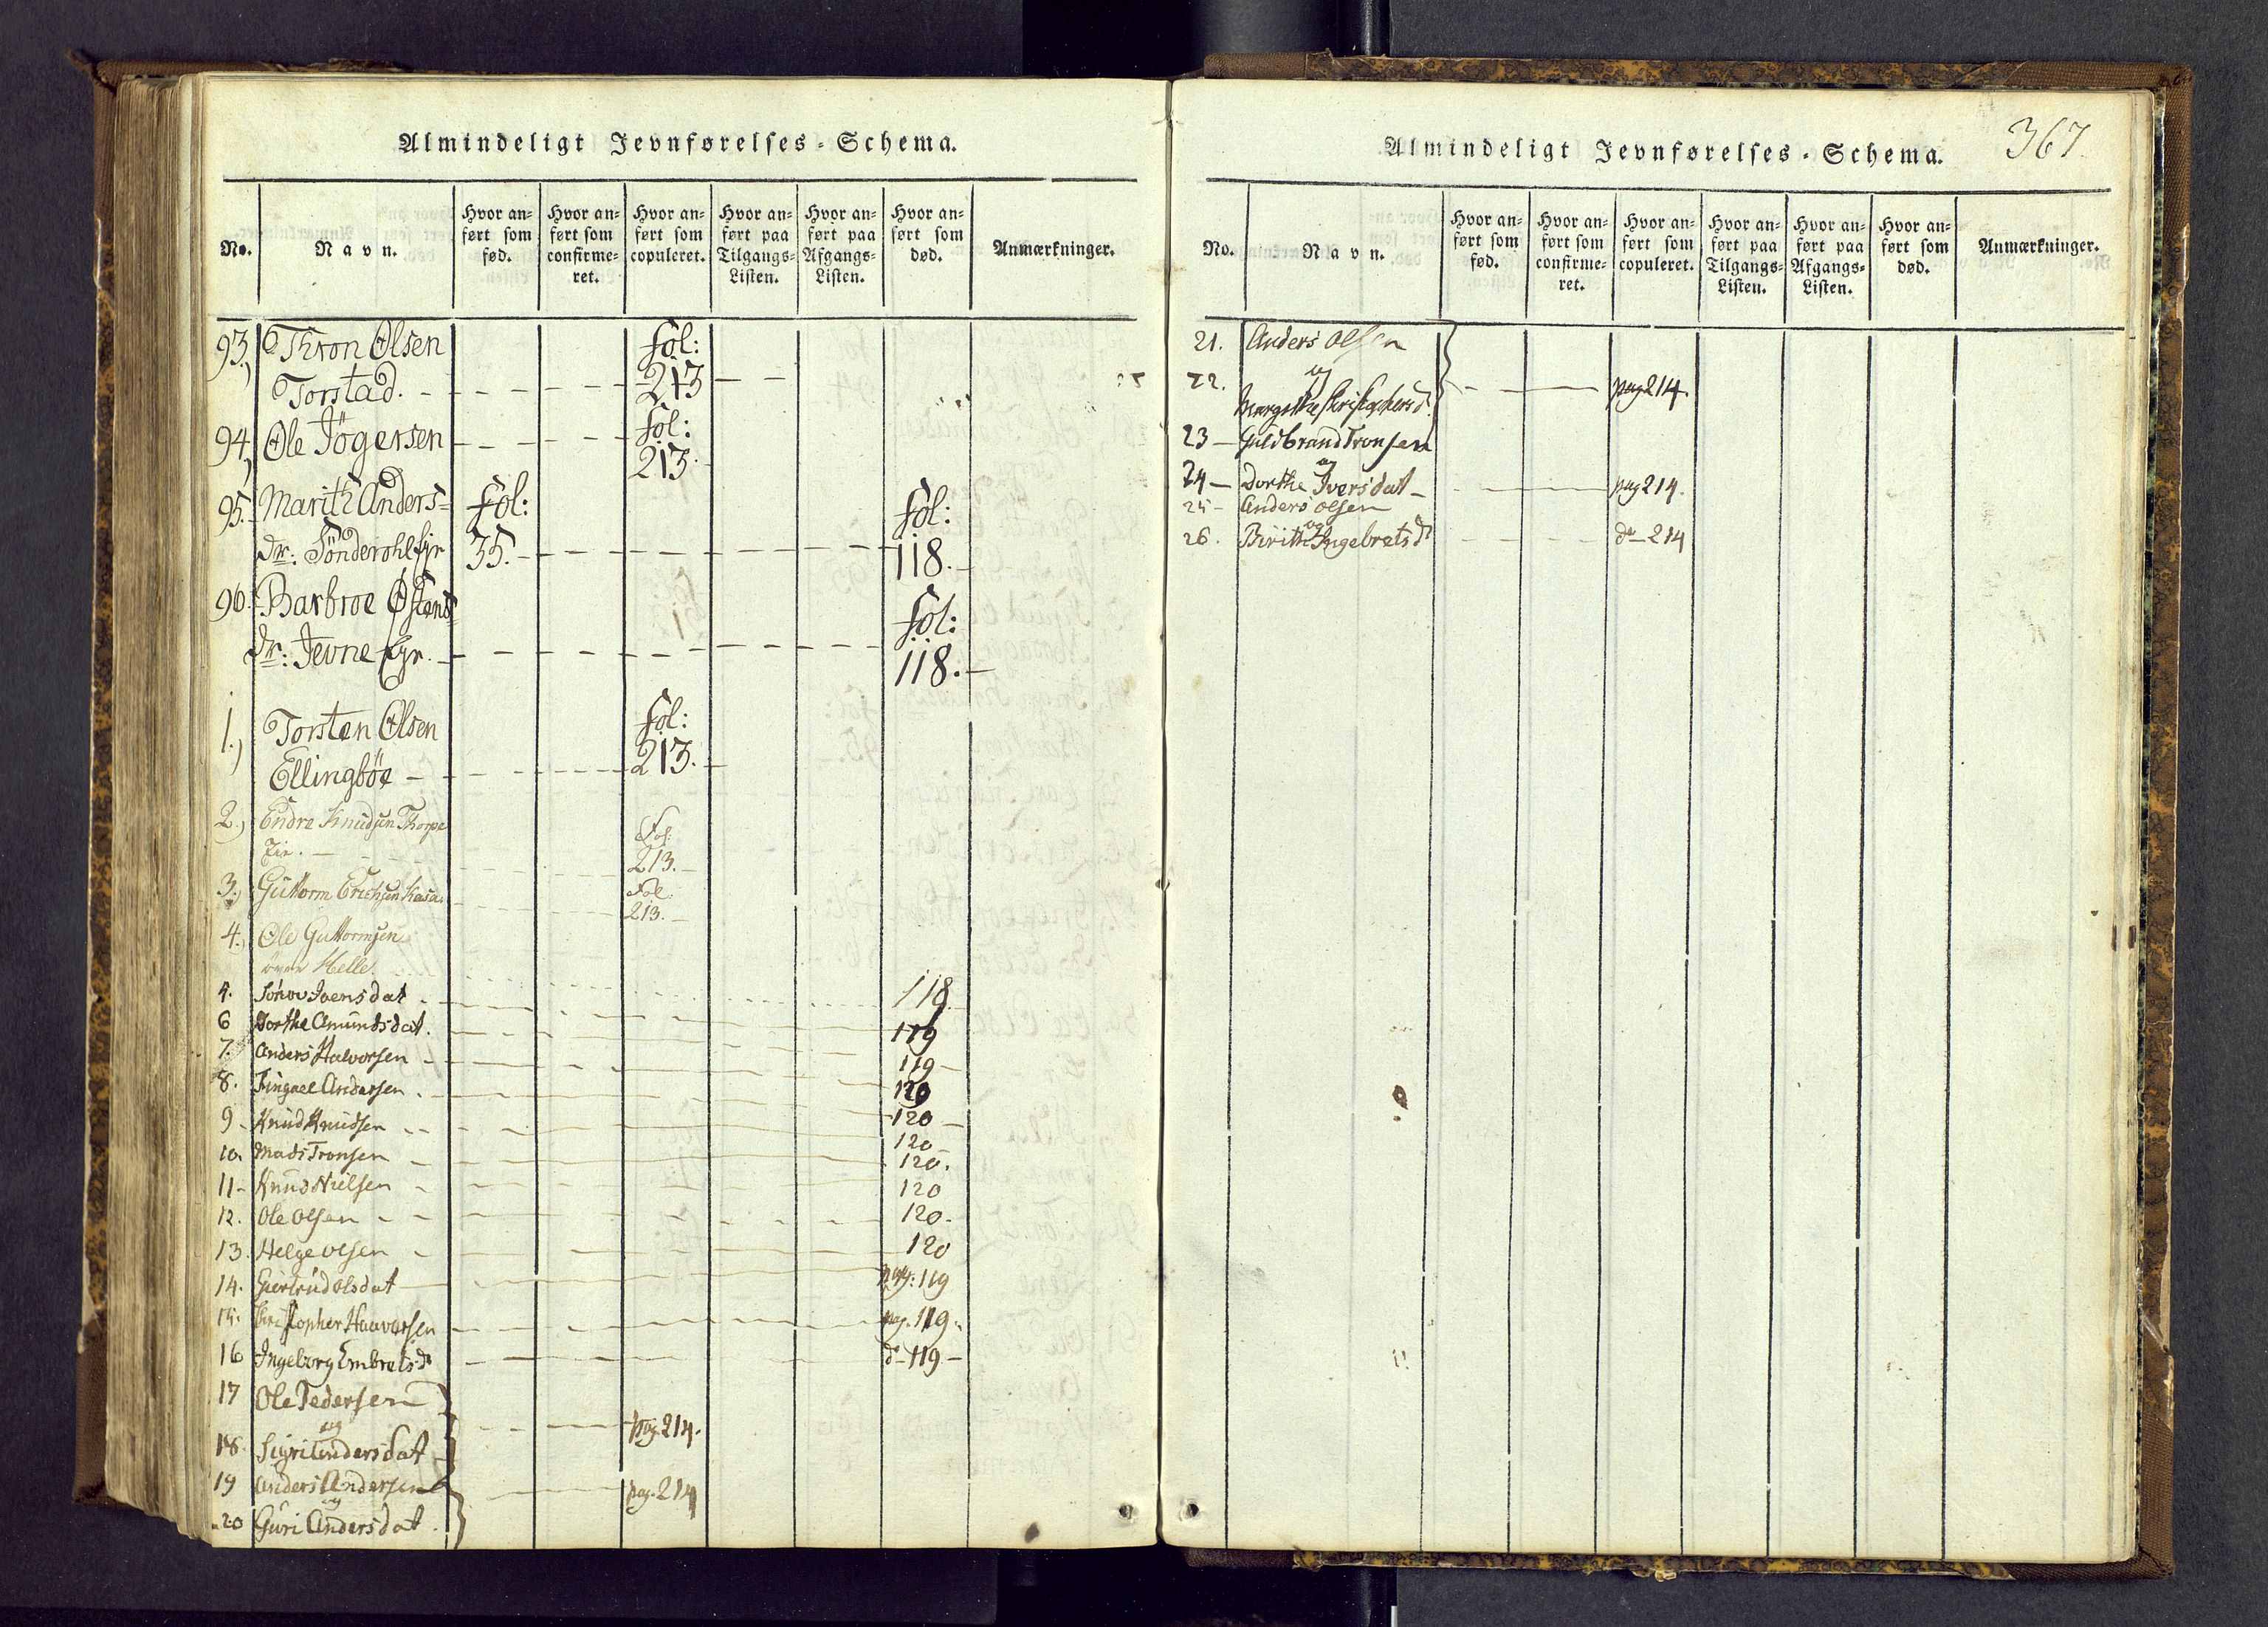 Almindeligt Jevnførelses-Schema.
No.
Navn.
Hvor an-
ført som
fød.
Hvor an-
ført som
confirme-
ret.
Hvor an-
ført som
copuleret.
Hvor an-
ført paa
Tilgangs-
Listen.
Hvor an-
ført paa
Afgangs-
Listen.
Hvor an-
ført som
død.
Anmærkninger.
93.) Thron Olsen fol:
Torstad. - - - - - 213 - -
94.) Ole Jögersen - - - - fol:
213.
95. Marith Anders= fol: fol:
dr: Sönderohl fjr 35. - - - - - - - 118. -
96. Barbroe Østens fol:
dr: Jevne fjr. - - - - - - - - 118. -
1.) Torsten Olsen fol:
Ellingböe - - - - - 213. -
2.) Endre Knudsen Thorpe Fol:
213. -
3.) Guttorm Erichsen Kasa. Fol.
213. -
4.) Ole Guttormsen
øvre Helle.
5. Joensdat. - - - - - 118
6 Dorthe Amundsdat. - - - - 119
7. Anders Halvorsen - - - - 119 -
8. Andersen. - - - - 120
9 - Knud Knudsen - - - - 120 -
120
10. Mads Tronsen - - - - 120.
11 - Knud Nielsen - - - - 120
12. Ole Olsen - - - - 120.
13. Helge Olsen - - - - 120
14. Giertrud Olsdat - - - - pag: 119
15. Christopher Haavorsen - - - - pag. 119.
16 Ingeborg Embretsdr - - - - do - 119 -
17 Ole Pedersen
og - - - pag. 214.
18. Sigri Andersdat
19 Anders Andersen - - - pag. 214
og
20 Guri Andersdat.
367.
Almindeligt Jevnførelses-Schema.
No.
Navn.
Hvor an-
ført som
fød.
Hvor an-
ført som
confirme-
ret.
Hvor an-
ført som
copuleret.
Hvor an-
ført paa
Tilgangs-
Listen.
Hvor an-
ført paa
Afgangs-
Listen.
Hvor an-
ført som
død.
Anmærkninger.
21. Anders Olsen
22. og - - - pag 214.
Margrethe Christophersd.
23 - Guldbrand Tronsen
og
24 - Dorthe Iversdat - - - pag 214.
25 - Anders Olsen
og
26. Birith Ingebretsdr - - - do - 214